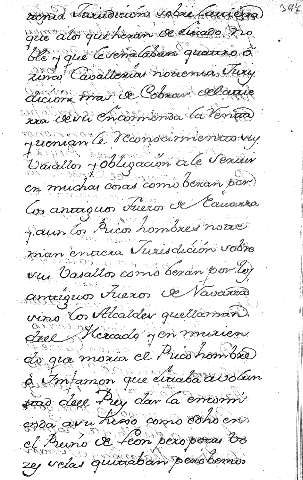 394
ninguna Jurisdicion sobre la tierra
que a los que heran de linaje no
ble y que le señalaban quatro o
cinco Cavallerias no tenian Jury
dicion mas de Cobrar de la tie
rra de su encomienda la Renta
y tenian le Reconocimiento sus
Vasallos y obligacion a le servir
en muchas cosas como beran por
los antiguos fueros de Navarra
y aun los Rico hombres no te
nian entera Jurisdicion sobre
sus Vasallos como beran por los
antiguos fueros de Navarra
sino los Alcaldes que llaman
del Mercado y en murien
do que moria el Rico hombre
o Infançon que estaba a volun
tad del Rey dar la encomi
enda a su hijo como dicho en
el Reino de Leon pero pocas be
zes se las quitaban pero bemos